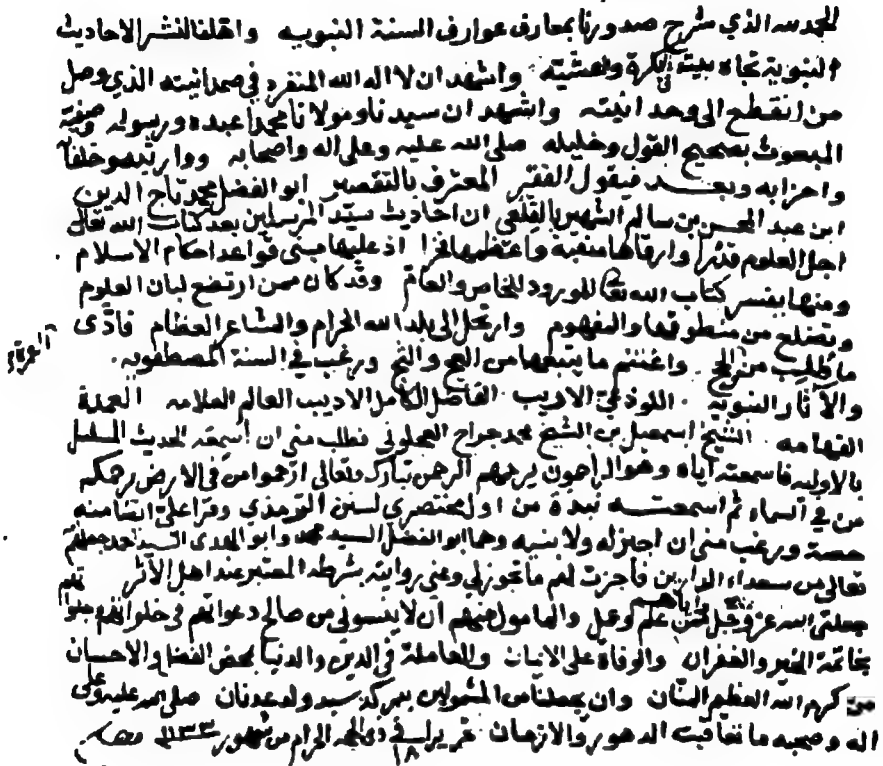 الحمد لله الذي شرح صدورنا بمعارف عوارف السنة النبويه واهلنا لنشر الاحاديث
النبوية تجاه بيته في البكرة والعشية واشهد ان لا اله الا الله المنفرد في صمدانيته الذي وصل
من انقطع الى وحدانيته واشهد ان سيدنا ومولانا محمدا عبده ورسوله وصفيه
المبعوث بصحيح القول وخليله صلى الله عليه وعلى اله واصحابه ووارثيه وخلفائه
واحزابه وبعد فيقول الفقير المعترف بالتقصير ابو الفضل محمد تاج الدين
ابن عبد المحسن بن سالم الشهير بالقلعي ان احاديث سيد المرسلين بعد كتاب الله تعالى
اجل العلوم قدرا وارقاها منقبة واعظمها فخرا اذ عليها مبنى قواعد احكام الاسلام
ومنها يفسر كتاب الله تعالى المورود للخاص والعام وقد كان ممن ارتضع لبان العلوم
وتضلع من منطوقها والمفهوم وارتحل الى بلد الله الحرام والمشاعر العظام فادى
ما طلب من الحج واغتنم ما يتبعها من العج والثج ورغب في السنة المصطفويه
والآثار النبويه اللوذعي الاريب الفاضل الكامل الاديب العالم العلامه العمدة
الفهامه الشيخ اسمعيل بن الشيخ محمد جراح العجلوني فطلب مني ان اسمعه الحديث المسلسل
بالاوليه فاسمعته اياه وهو الراحمون يرحمهم الرحمن تبارك وتعالى ارحموا من في الارض يرحمكم
من في السماء ثم اسمعته نبذة من اول مختصري لسنن الترمذي وقرا علي ايضا منه
حصة ورغب مني ان اجيز له ولابنيه وهما ابو الفضل السيد محمد وابو الهدى السيد احمد جعلهم
تعالى من سعداء الدارين فاجزت لهم ما تجوز لي وعني روايته بشرطه المعتبر عند اهل الاثر
جعلني الله عز وجل واياهم ممن علم وعمل والمامول منهم ان لا ينسوني من صالح دعواتهم في خلواتهم وجلواتهم
بخاتمة الخير والغفران والوفاة على الايمان والمعاملة في الدين والدنيا بمحض الفضل والاحسان
من كرم الله العظيم المنان وان يجعلنا من المشمولين ببركة سيد ولد عدنان صلى الله عليه وعلى
اله وصحبه ما تعاقبت الدهور والازمان تحريرا في ١٨ ذي الحجة الحرام من شهور ١١٣٣